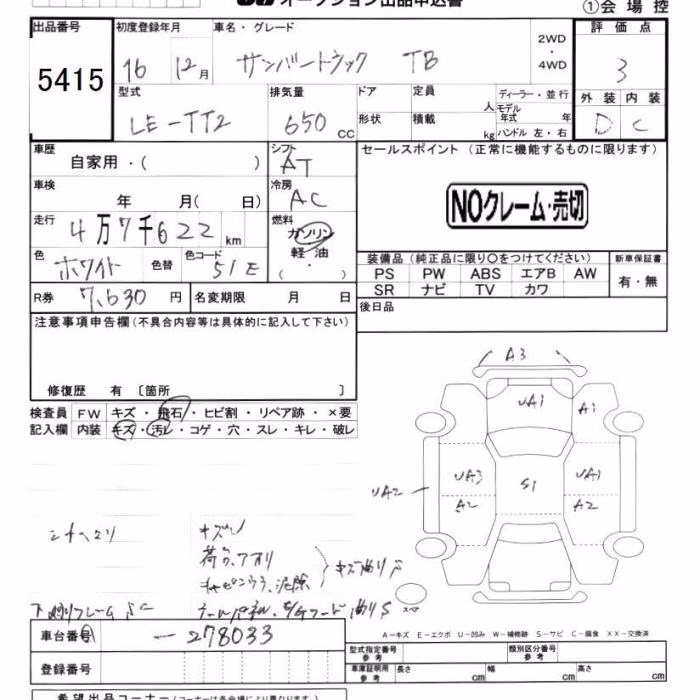 オークション出品申込書
①会場控
出品番号 初度登録年月 車名・グレード 2WD・4WD 評価点
5415 16 12月 サンバートラック TB 3
型式 排気量 ドア 定員 人 ディーラー・並行 外装 内装
LE-TT2 650 cc 形状 積載 kg モデル年式 年 ハンドル 左・右 D C
車歴 シフト セールスポイント (正常に機能するものに限ります)
自家用・( ) AT
車検 冷房
年 月( 日) AC
NOクレーム・売切
走行 燃料
4万7千622 km ガソリン
色 色替 色コード 軽油
ホワイト 51E ・( )
装備品 (純正品に限り○をつけてください) 新車保証書
PS PW ABS エアB AW 有・無
SR ナビ TV カワ
R券 7,630 円 名変期限 月 日
後日品
注意事項申告欄(不具合内容等は具体的に記入して下さい)
修復歴 有 〔箇所 〕
検査員 FW キズ・飛石・ヒビ割・リペア跡・×要
記入欄 内装 キズ・汚レ・コゲ・穴・スレ・キレ・破レ
A3
UA1 A1
UA3 S1 UA1
UA2
A2 A2
スペア
荷台、アオリ
キズ曲りS
A-キズ E-エクボ U-凹み W-補修跡 S-サビ C-腐食 XX-交換済
車台番号 -278033
型式指定番号 参考 類別区分番号 参考
登録番号
車庫証明用 参考 長さ cm 幅 cm 高さ cm
希望出品コーナー(コーナーは各会場により異なります)